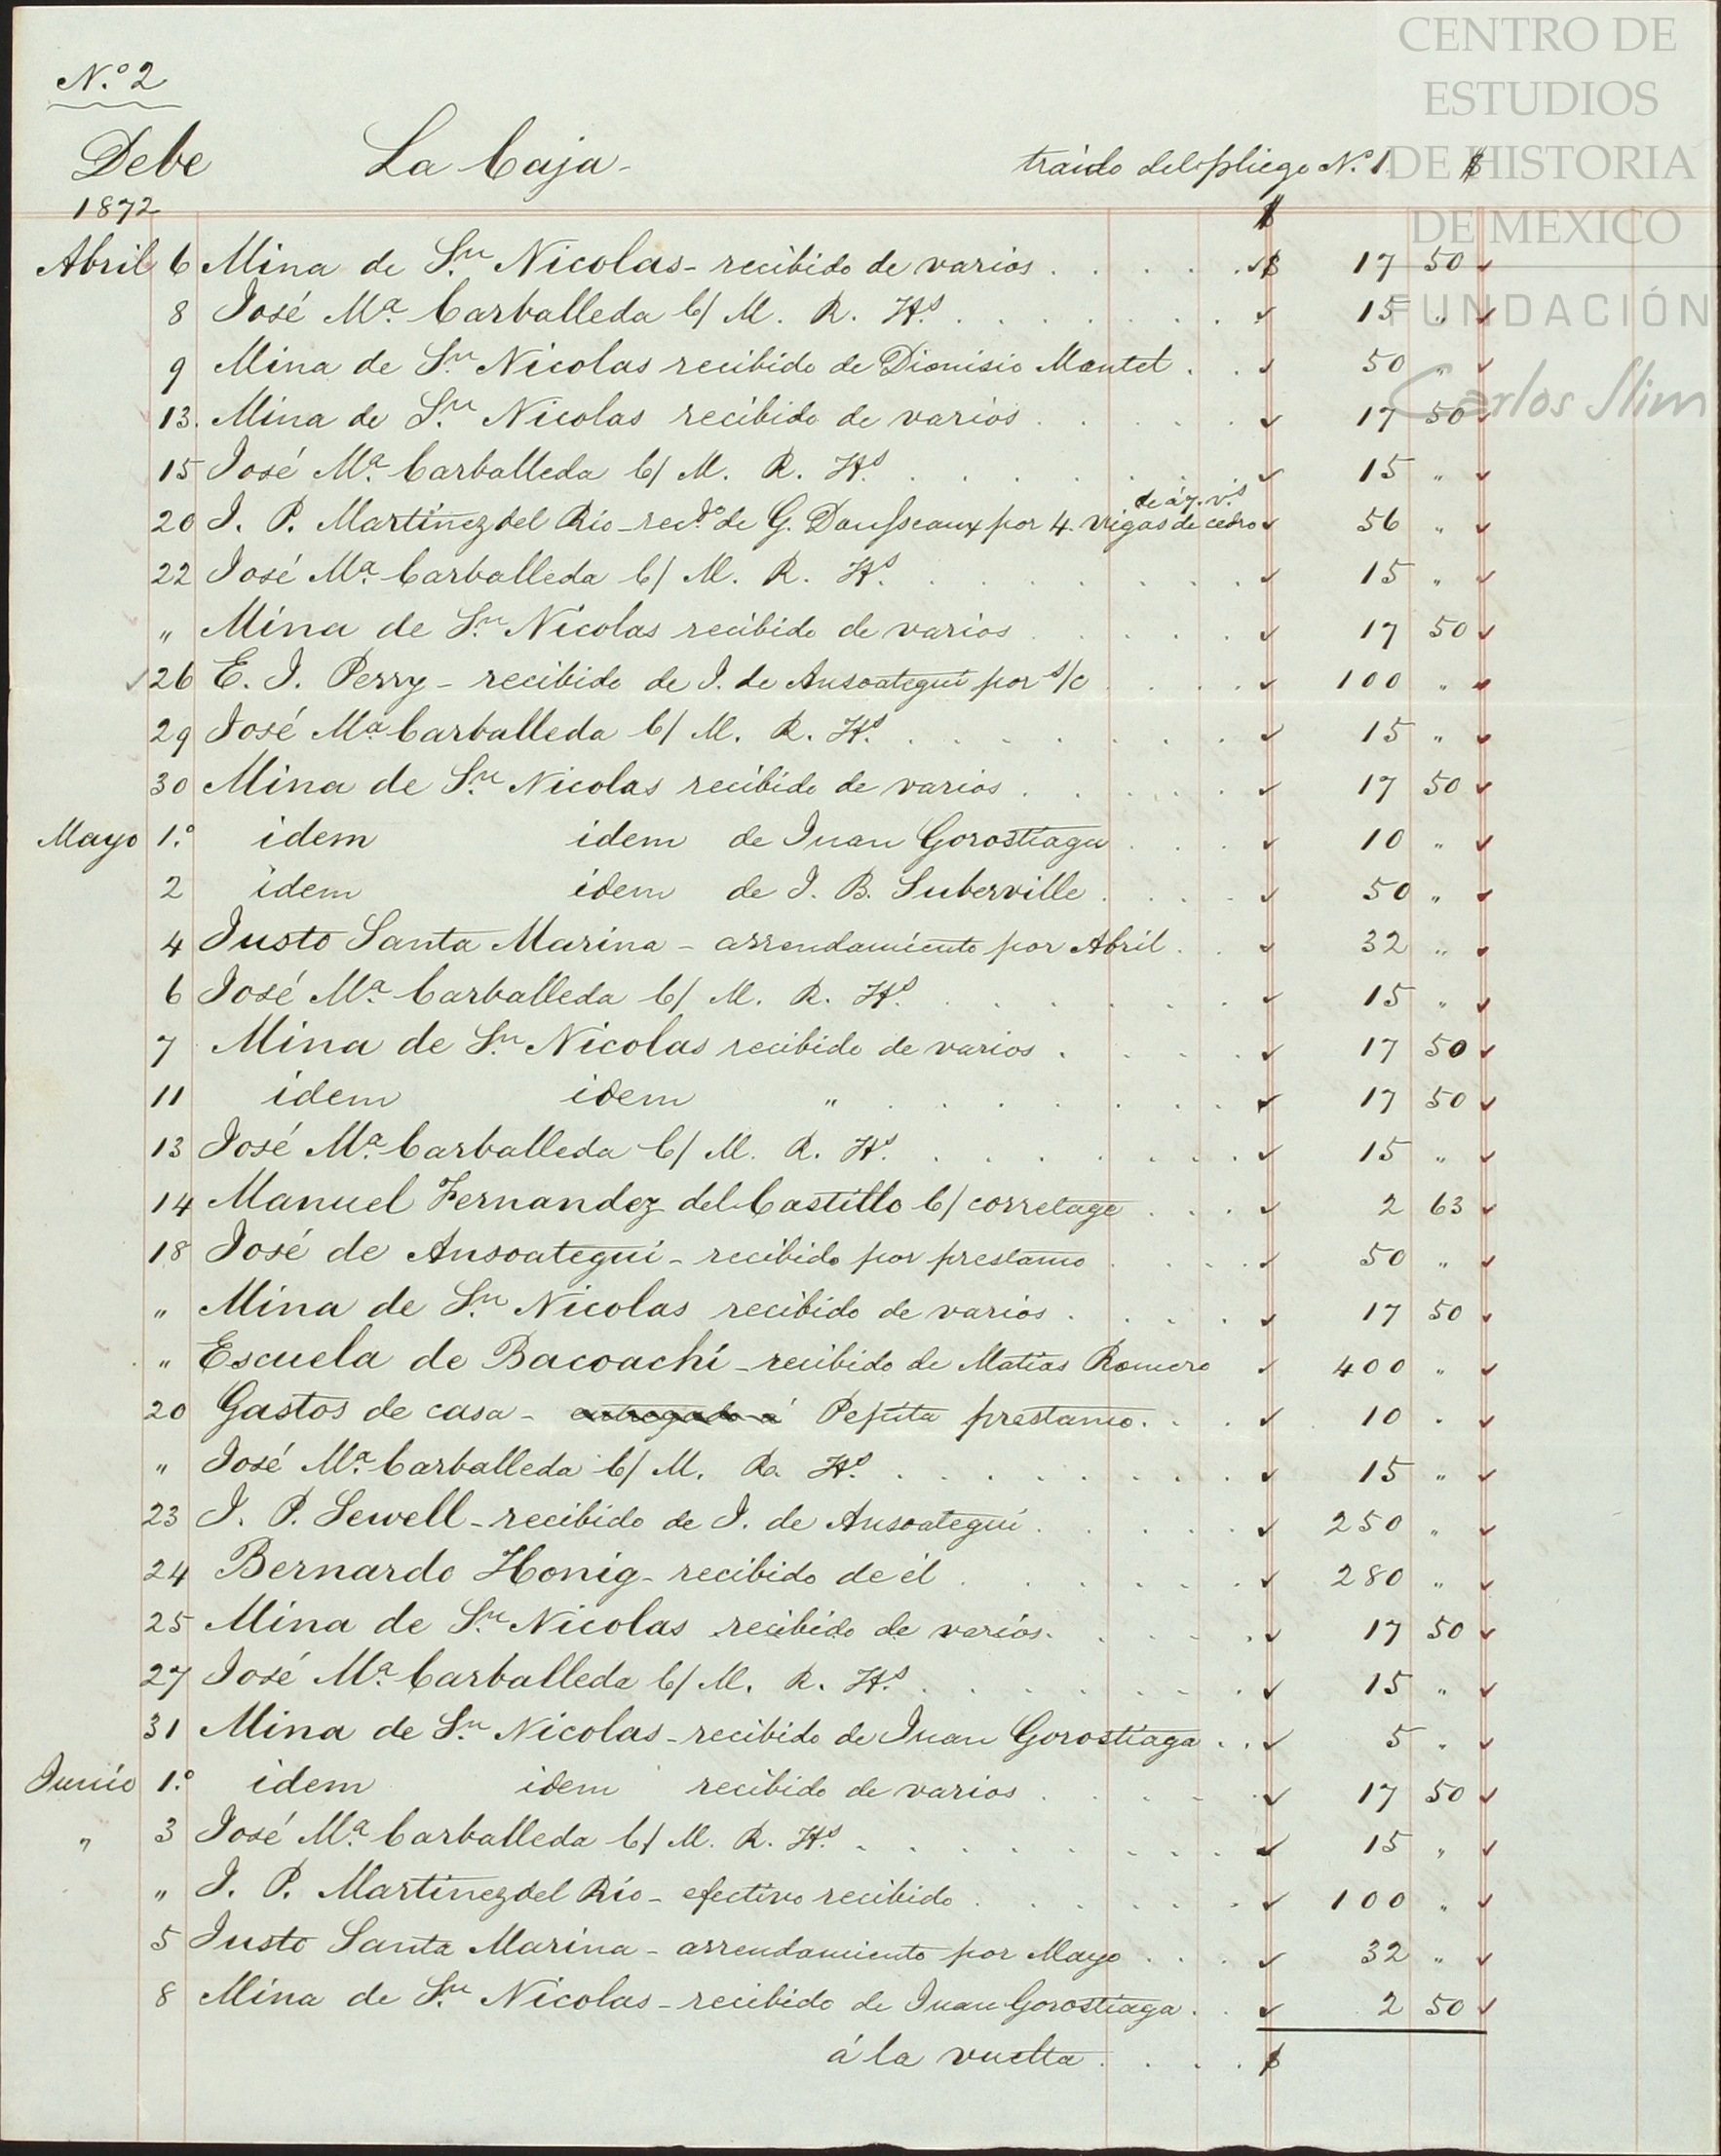 CENTRO DE
ESTUDIOS
DE HISTORIA
DE MEXICO
FUNDACIÓN
Carlos Slim
N.º 2
Debe La Caja - traido del pliego N.º 1 $
1872 $
Abril 6 Mina de S.n Nicolas - recibido de varios . . . . . $ 17 50
8 José M.ª Carballeda C/ M. R. H.s . . . . . . 15 "
9 Mina de S.n Nicolas recibido de Dionisio Montet . . 50 "
13. Mina de S.n Nicolas recibido de varios . . . . . 17 50
15 José M.ª Carballeda C/ M. R. H.s . . . . . . 15 "
de á 7. v.s
20 J. P. Martinez del Rio - rec.do de G. Dousseaux por 4. vigas de cedro 56 "
22 José M.ª Carballeda C/ M. R. H.s . . . . . . 15 "
" Mina de S.n Nicolas recibido de varios . . . . . 17 50
26 E. J. Perry - recibido de J. de Ansoategui por s/c . . . 100 "
29 José M.ª Carballeda C/ M. R. H.s . . . . . . 15 "
30 Mina de S.n Nicolas recibido de varios . . . . . 17 50
Mayo 1.º idem idem de Juan Gorostiaga . . . 10 "
2 idem idem de J. B. Suberville . . . . 50 "
4 Justo Santa Marina - arrendamiento por Abril . . 32 "
6 José M.ª Carballeda C/ M. R. H.s . . . . . . 15 "
7 Mina de S.n Nicolas recibido de varios . . . . 17 50
11 idem idem " . . . . . . . 17 50
13 José M.ª Carballeda C/ M. R. H.s . . . . . . 15 "
14 Manuel Fernandez del Castillo C/ corretage . . . 2 63
18 José de Ansoategui - recibido por prestamo . . . . 50 "
" Mina de S.n Nicolas recibido de varios . . . . 17 50
" Escuela de Bacoachi - recibido de Matias Romero 400 "
20 Gastos de casa - entregado á Pepita prestamo. . . 10 .
" José M.ª Carballeda C/ M. R. H.s . . . . . . . 15 "
23 J. P. Sewell - recibido de J. de Ansoategui . . . . . 250 "
24 Bernardo Honig - recibido de él . . . . . . 280 "
25 Mina de S.n Nicolas recibido de varios. . . . . 17 50
27 José M.ª Carballeda C/ M. R. H.s . . . . . . 15 "
31 Mina de S.n Nicolas - recibido de Juan Gorostiaga . . 5 "
Junio 1.º idem idem recibido de varios . . . . . 17 50
" 3 José M.ª Carballeda C/ M. R. H.s . . . . . . . 15 "
" J. P. Martinez del Rio - efectivo recibido . . . . . . 100 "
5 Justo Santa Marina - arrendamiento por Mayo . . . 32 "
8 Mina de S.n Nicolas - recibido de Juan Gorostiaga . . 2 50
á la vuelta . . . . $